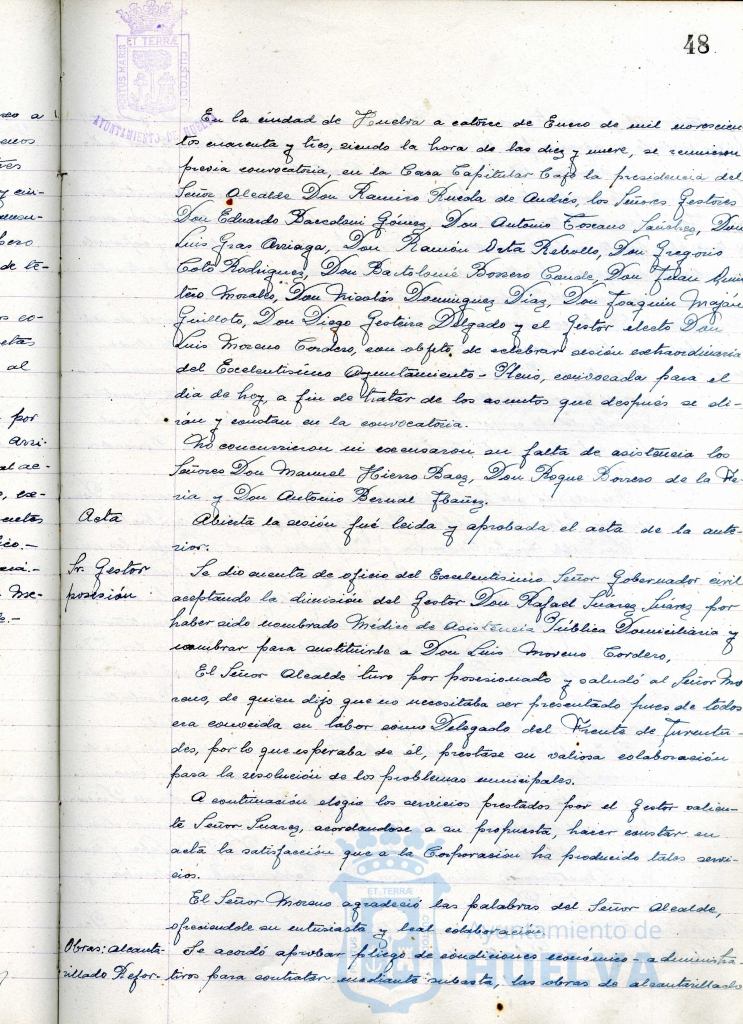 48
PORTUS MARIS ET TERRÆ CUSTODIA
AYUNTAMIENTO DE HUELVA
En la ciudad de Huelva a catorce de Enero de mil novescien-
tos cuarenta y tres, siendo la hora de las diez y nueve, se reunieron
previa convocatoria, en la Casa Capitular bajo la presidencia del
Señor Alcalde Don Ramiro los Señores Gestores
Don Eduardo Barceloni Gómez, Don Antonio Toscano Sánchez, Don
Luis Gras Arriaga, Don Ramón Orta Rebollo, Don Gregorio
Coto Rodriguez, Don Bartolomé Borrero Conde, Don Juan Quin
tero Morales, Don Nicolás Dominguez Diaz, Don Joaquin
Guilloto, Don Diego Delgado y el Gestor electo Don
Luis Moreno Cordero, con objeto de celebrar sesión extraordinaria
del Excelentisimo Ayuntamiento-Pleno, convocada para el
dia de hoy, a fin de tratar de los asuntos que después se di-
rán y constan en la convocatoria.
No concurrieron ni excusaron su falta de asistencia los
Señores Don Manuel Hierro Baez, Don Roque Borrero de la Fe-
ria y Don Antonio Bernal Ibañez.
Acta
Abierta la sesión fué leida y aprobada el acta de la ante-
rior.
Sr. Gestor
posesión
Se dio cuenta de oficio del Excelentisimo Señor Gobernador civil
aceptando la dimisión del Gestor Don Rafael Suárez Suárez por
haber sido nombrado Médico de Asistencia Pública Domiciliaria y
nombrar para sustituirle a Don Luis Moreno Cordero,
El Señor Alcalde tuvo por posesionado y saludó al Señor Mo
reno, de quien dijo que no necesitaba ser presentado pues de todos
era conocida su labor como Delegado del Frente de Juventu-
des, por lo que esperaba de él, prestase su valiosa colaboración
para la resolución de los problemas municipales.
A continuación elogia los servicios prestados por el Gestor salien-
te Señor Suarez, acordandose a su propuesta, hacer constar en
acta la satisfacción que a la Corporación ha producido tales servi-
cios.
El Señor Moreno agradeció las palabras del Señor Alcalde,
ofreciendole su entusiasta y leal colaboración.
Obras: alcanta-
rillado Refor-
Se acordó aprobar pliego de condiciones económico-administra-
tivas para contratar mediante subasta, las obras de alcantarillado
Ayuntamiento de
HUELVA